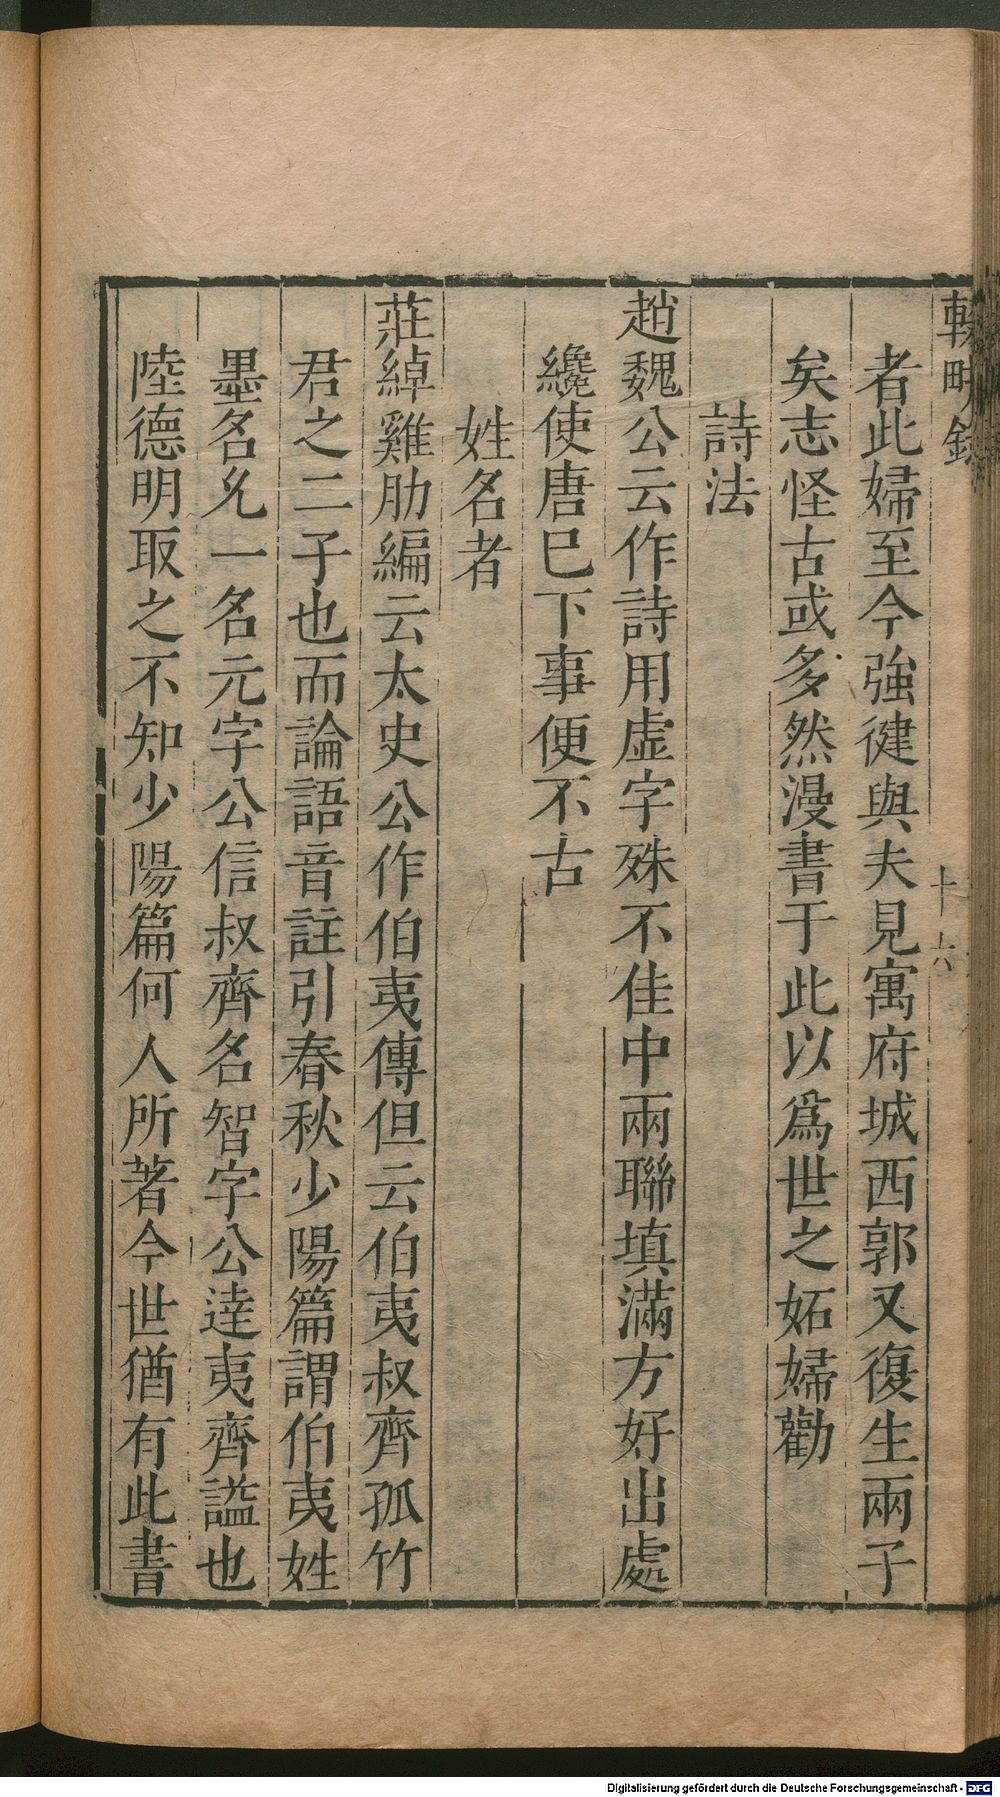 輟畊錄
十六
者此婦至今強健與夫見寓府城西郭又復生兩子
矣志怪古或多然漫書于此以爲世之妬婦勸
詩法
趙魏公云作詩用虛字殊不佳中兩聯填滿方好出處
纔使唐巳下事便不古
姓名者
莊綽雞肋編云太史公作伯夷傳但云伯夷叔齊孤竹
君之二子也而論語音註引春秋少陽篇謂伯夷姓
墨名允一名元字公信叔齊名智字公逹夷齊謚也
陸德明取之不知少陽篇何人所著今世猶有此書
Digitalisierung gefördert durch die Deutsche Forschungsgemeinschaft - DFG